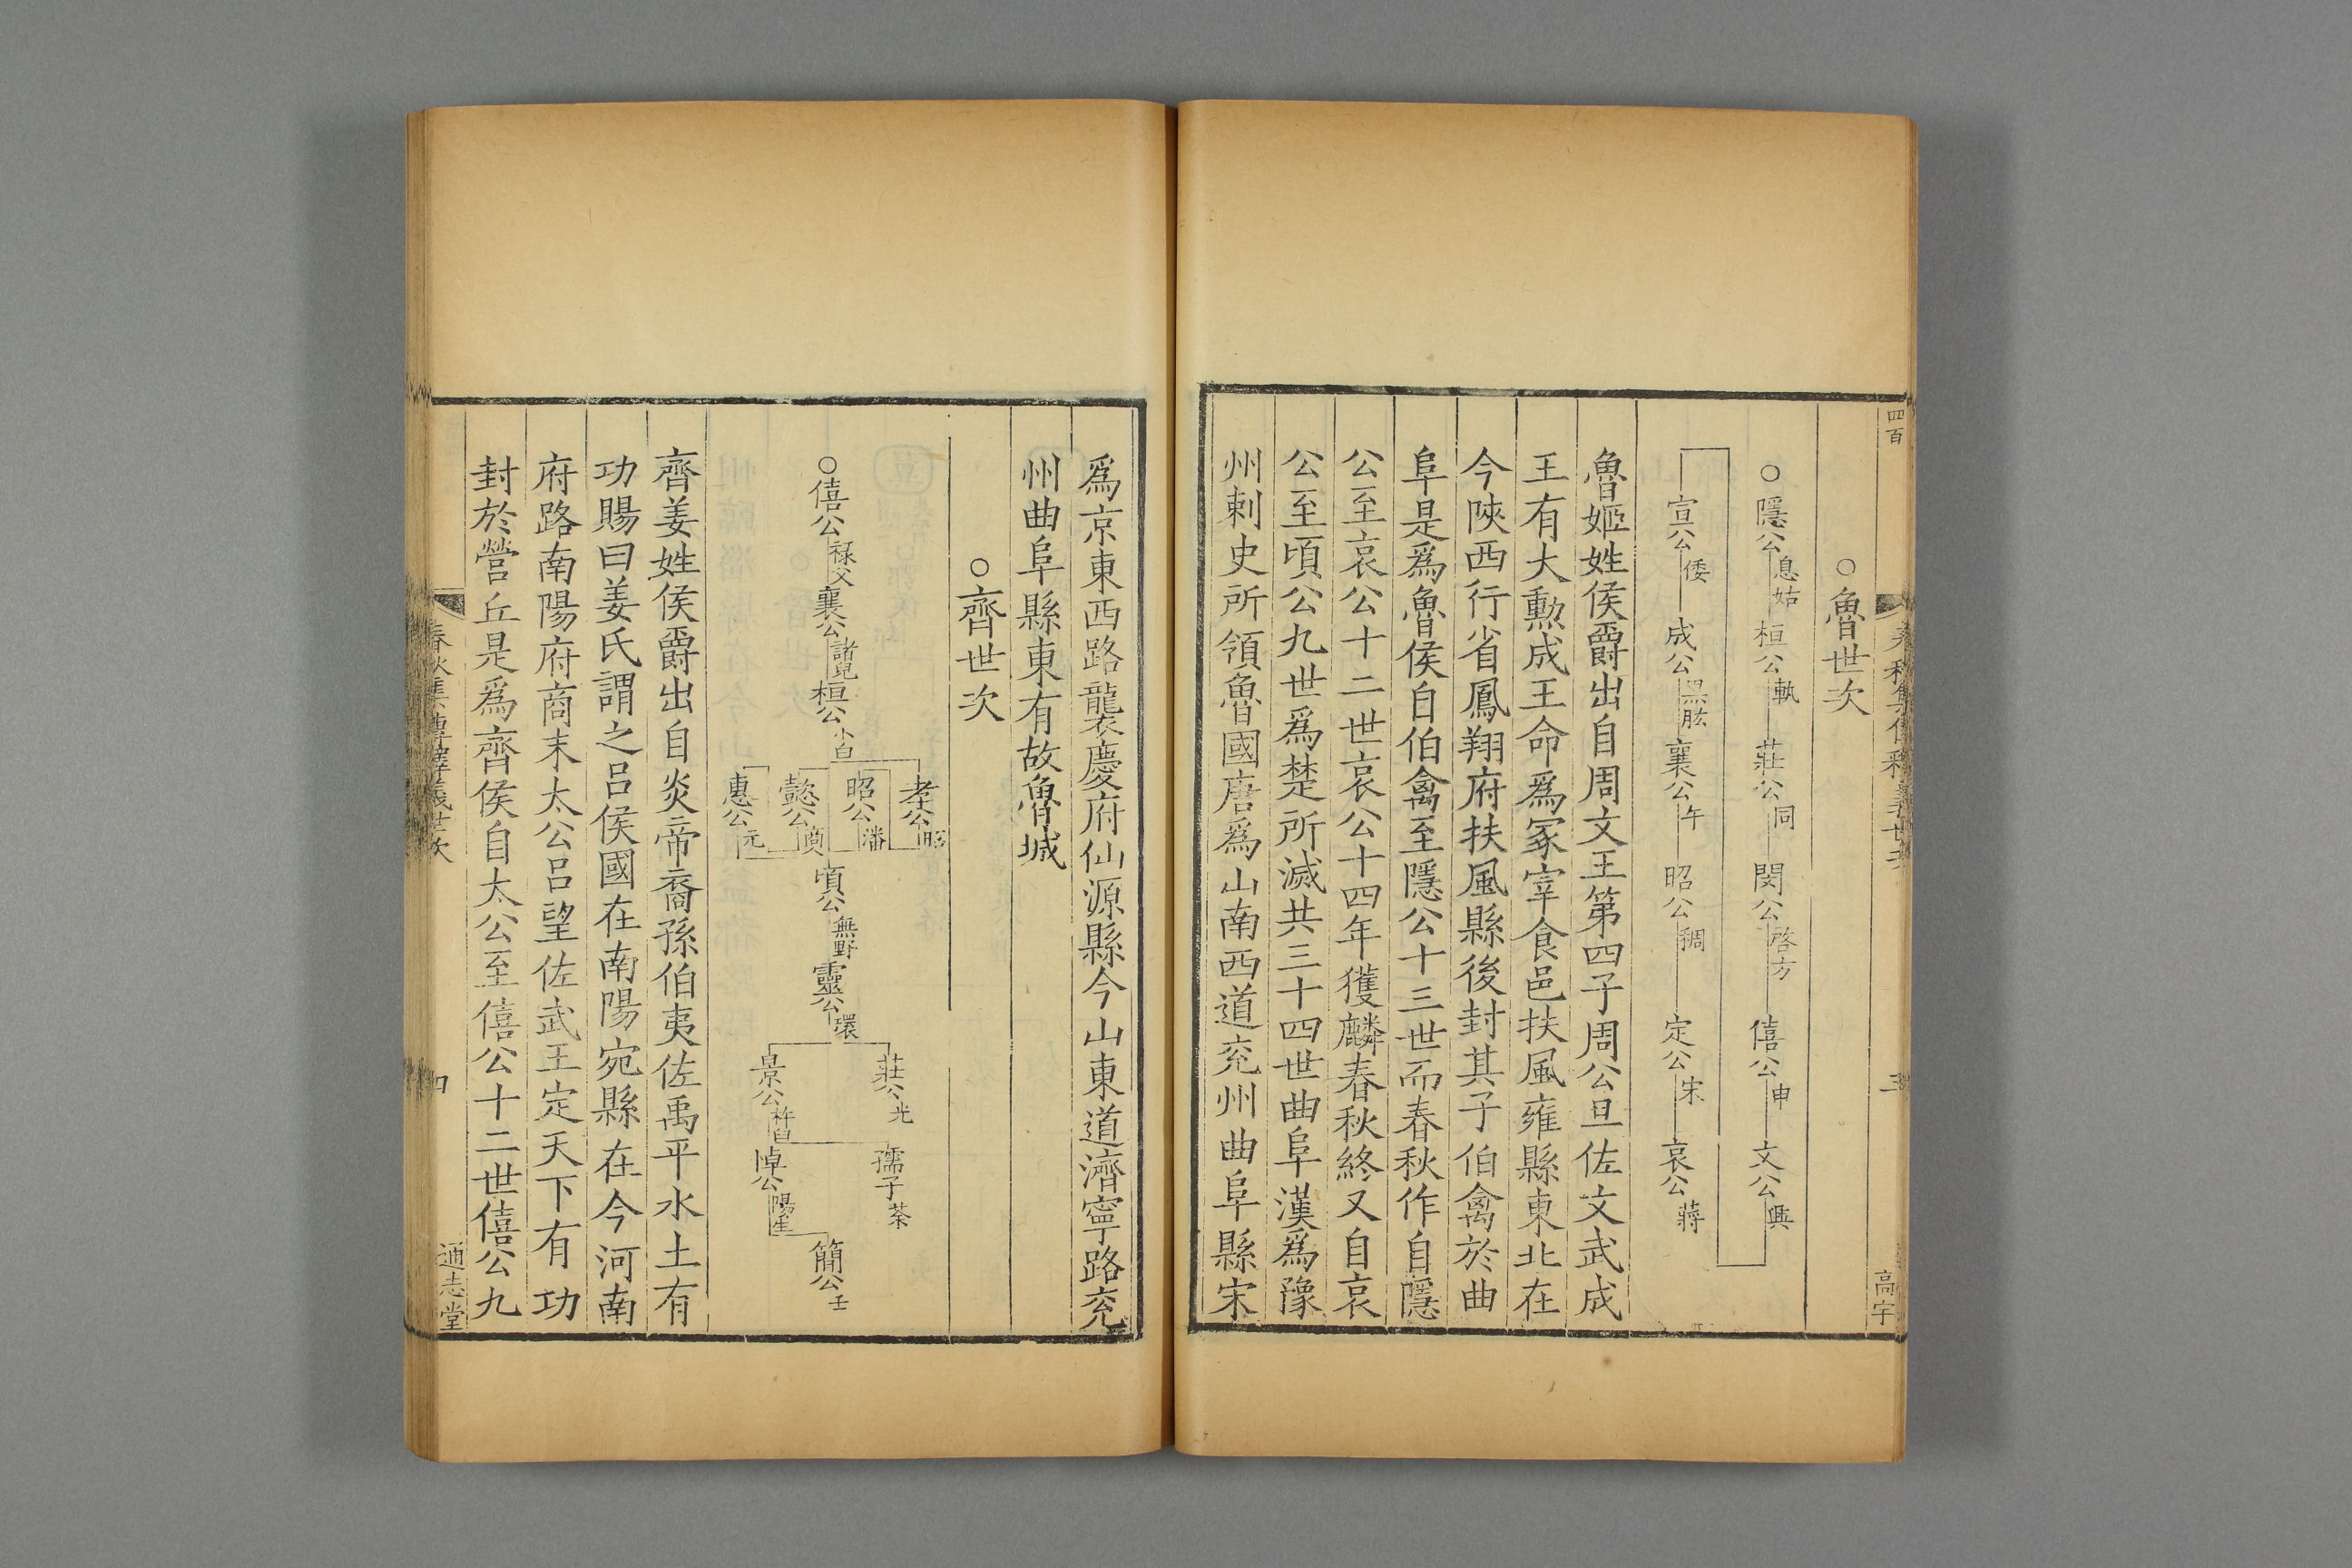 四百
春秋集傳釋義世次
三
高宇
○魯世次
○隱公息姑 桓公軌 莊公同 閔公啓方 僖公申 文公興
宣公倭 成公黑肱 襄公午 昭公稠 定公宋 哀公蔣
魯姬姓侯爵出自周文王第四子周公旦佐文武成
王有大勲成王命爲冢宰食邑扶風雍縣東北在
今陜西行省鳳翔府扶風縣後封其子伯禽於曲
阜是爲魯侯自伯禽至隱公十三世而春秋作自隱
公至哀公十二世哀公十四年獲麟春秋終又自哀
公至頃公九世爲楚所滅共三十四世曲阜漢爲豫
州剌史所領魯國唐爲山南西道兖州曲阜縣宋
爲京東西路襲慶府仙源縣今山東道濟寧路兖
州曲阜縣東有故魯城
○齊世次
○僖公祿父 襄公諸兒 桓公小白
孝公昭
昭公潘
懿公商
惠公元
頃公無野 靈公環
莊公光
景公杵臼
孺子荼
悼公陽生
簡公壬
齊姜姓侯爵出自炎帝裔孫伯夷佐禹平水土有
功賜曰姜氏謂之呂侯國在南陽宛縣在今河南
府路南陽府商末太公呂望佐武王定天下有功
封於營丘是爲齊侯自太公至僖公十二世僖公九
春秋集傳釋義世次
四
通志堂